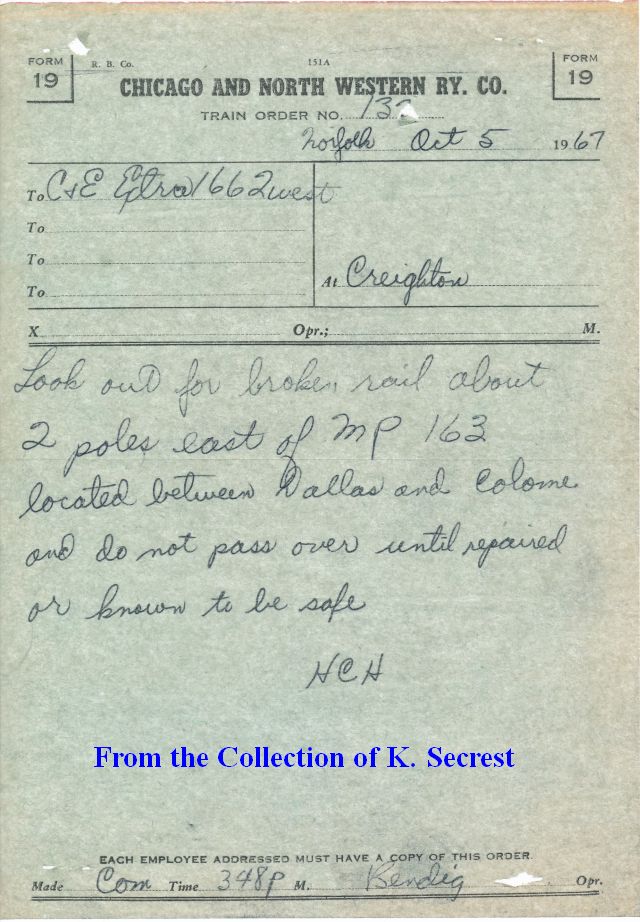 FORM 19
R. B. Co.
151A
FORM 19
CHICAGO AND NORTH WESTERN RY. CO.
TRAIN ORDER NO. 132
Norfolk Oct 5 1967
To C&E Extra 1662 west
To
To
To
At Creighton
X Opr.; M.
Look out for broken rail about
2 poles east of MP 163
located between Dallas and Colome
and do not pass over until repaired
or known to be safe
HCH
From the Collection of K. Secrest
EACH EMPLOYEE ADDRESSED MUST HAVE A COPY OF THIS ORDER.
Made Com Time 348 P M. Kendig Opr.